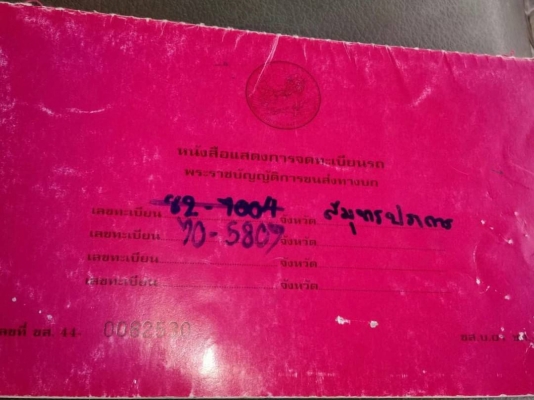 หนังสือแสดงการจดทะเบียนรถ
พระราชบัญญัติการขนส่งทางบก
เลขทะเบียน 82-7004 จังหวัด สมุทรปราการ
เลขทะเบียน 70-5807 จังหวัด
เลขทะเบียน จังหวัด
เลขทะเบียน จังหวัด
เลขที่ ขส. 44